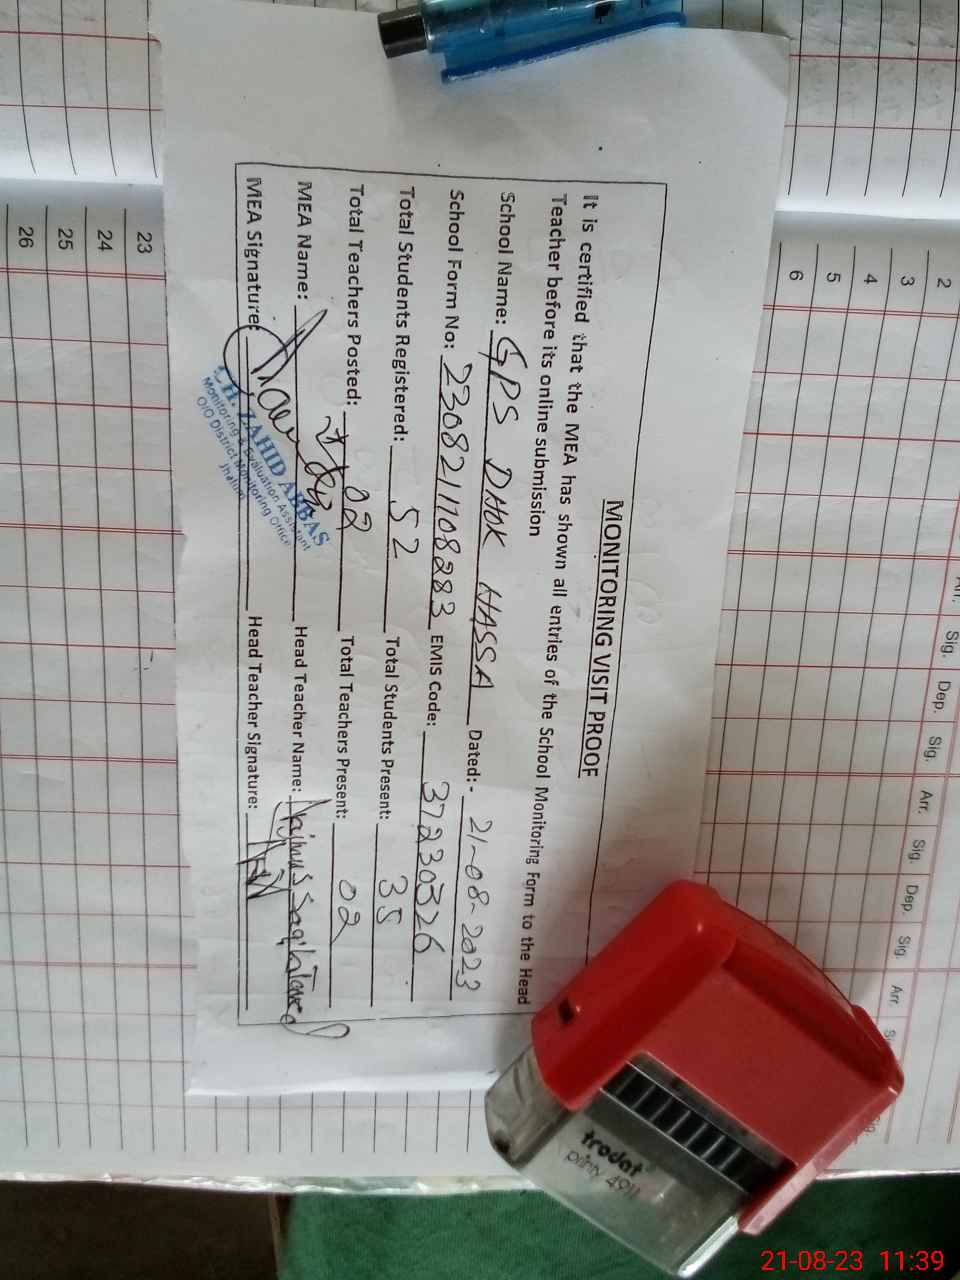 MONITORING VISIT PROOF
It is certified that the MEA has shown all entries of the School Monitoring Form to the Head
Teacher before its online submission
School Name: GPS DHOK HASSA Dated:- 21-08-2023
School Form No: 2308211108283 EMIS Code: 37230326
Total Students Registered: 52 Total Students Present: 35
Total Teachers Posted: 02 Total Teachers Present: 02
MEA Name: Head Teacher Name:
MEA Signature: Head Teacher Signature:
CH. ZAHID ABBAS
Monitoring & Evaluation Assistant
O/O District Monitoring Office
Jhelum
2
3
4
5
6
Sig. Dep. Sig. Arr. Sig. Dep. Sig. Arr.
23
24
25
26
trodat
printy 4911
21-08-23 11:39